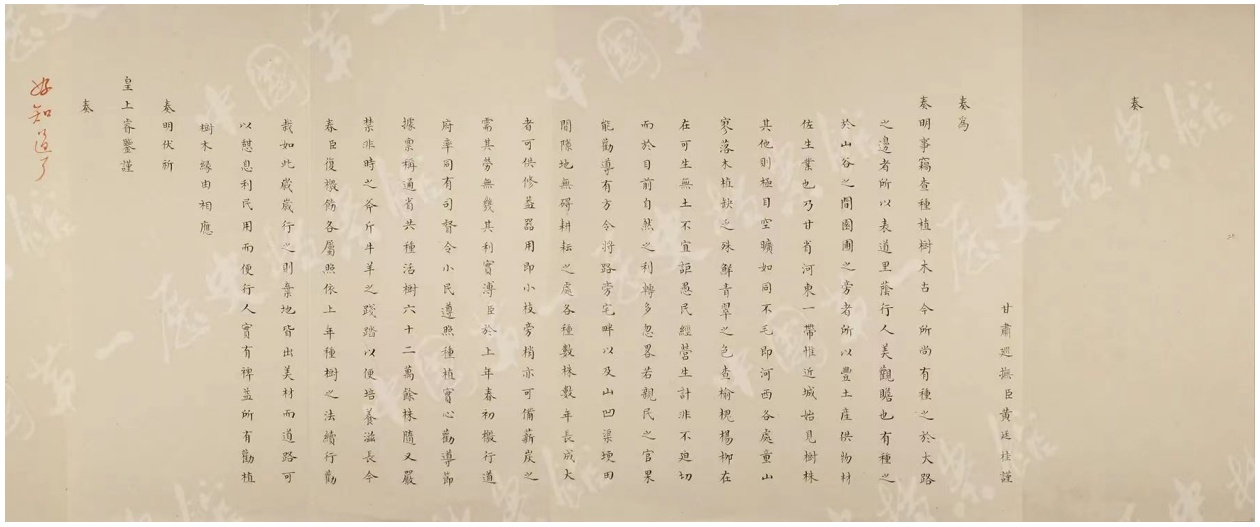 奏
甘肅巡撫臣黃廷桂謹
奏為
奏明事竊查種植樹木古今所尚有種之於大路
之邊者所以表道里蔭行人美觀瞻也有種之
於山谷之間園圃之旁者所以豐土產供物材
佐生業也乃甘省河東一帶惟近城始見樹株
其他則極目空曠如同不毛即河西各處童山
寥落木植缺乏殊鮮青翠之色查榆槐楊柳在
在可生無土不宜詎愚民經營生計非不迫切
而於目前自然之利轉多忽畧若親民之官果
能勸導有方令將路旁宅畔以及山凹渠埂田
間隙地無碍耕耘之處各種數株數年長成大
者可供修益器用即小枝旁梢亦可備薪炭之
需其勞無幾其利實溥臣於上年春初檄行道
府率司有司督令小民遵照種植實心勸導節
據禀稱通省共種活樹六十二萬餘株隨又嚴
禁非時之斧斤牛羊之踐踏以便培養滋長今
春臣復檄飭各屬照依上年種樹之法續行勸
栽如此歲歲行之則棄地皆出美材而道路可
以憩息利民用而便行人實有裨益所有勸植
樹木緣由相應
奏明伏祈
皇上睿鑒謹
奏
好知道了
中國第一歷史檔案館